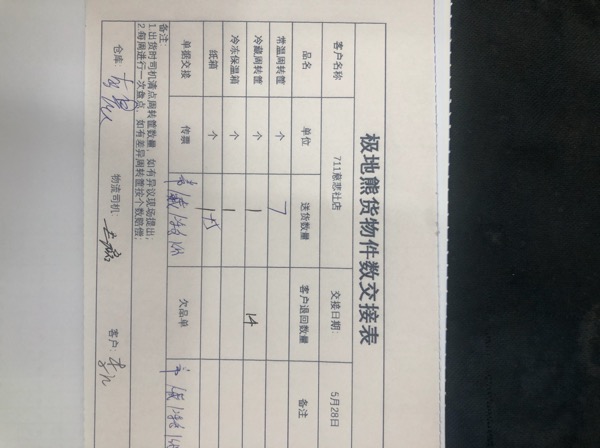 极地熊货物件数交接表
客户名称 711慈悲社店 交接日期: 5月28日
品名 单位 送货数量 客户退回数量 备注
常温周转筐 个 7
冷藏周转筐 个 1 14
冷冻保温箱 个 1
纸箱 个
单据交接 传票 欠品单
备注:
1.出货时司机清点周转筐数量，如有异议现场提出;
2.每周进行一次盘点，如有差异周转筐按个数赔偿;
仓库: 物流司机: 客户: